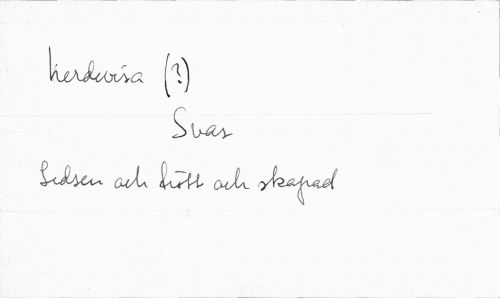 herdevisa (?)
Svar
Ledsen och trött och skapad